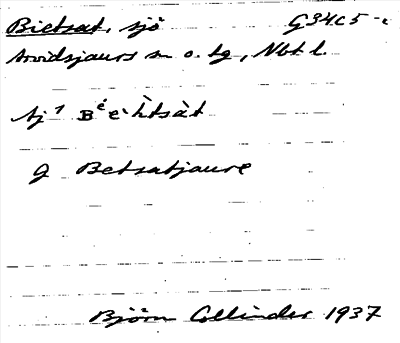 Bietsat, sjö G34c5-c
Arvidsjaurs sn o. tg, Nbt l.
sj¹ Bᵉ́èh̀tsàt
g Betsatjaure
Björn Collinder 1937